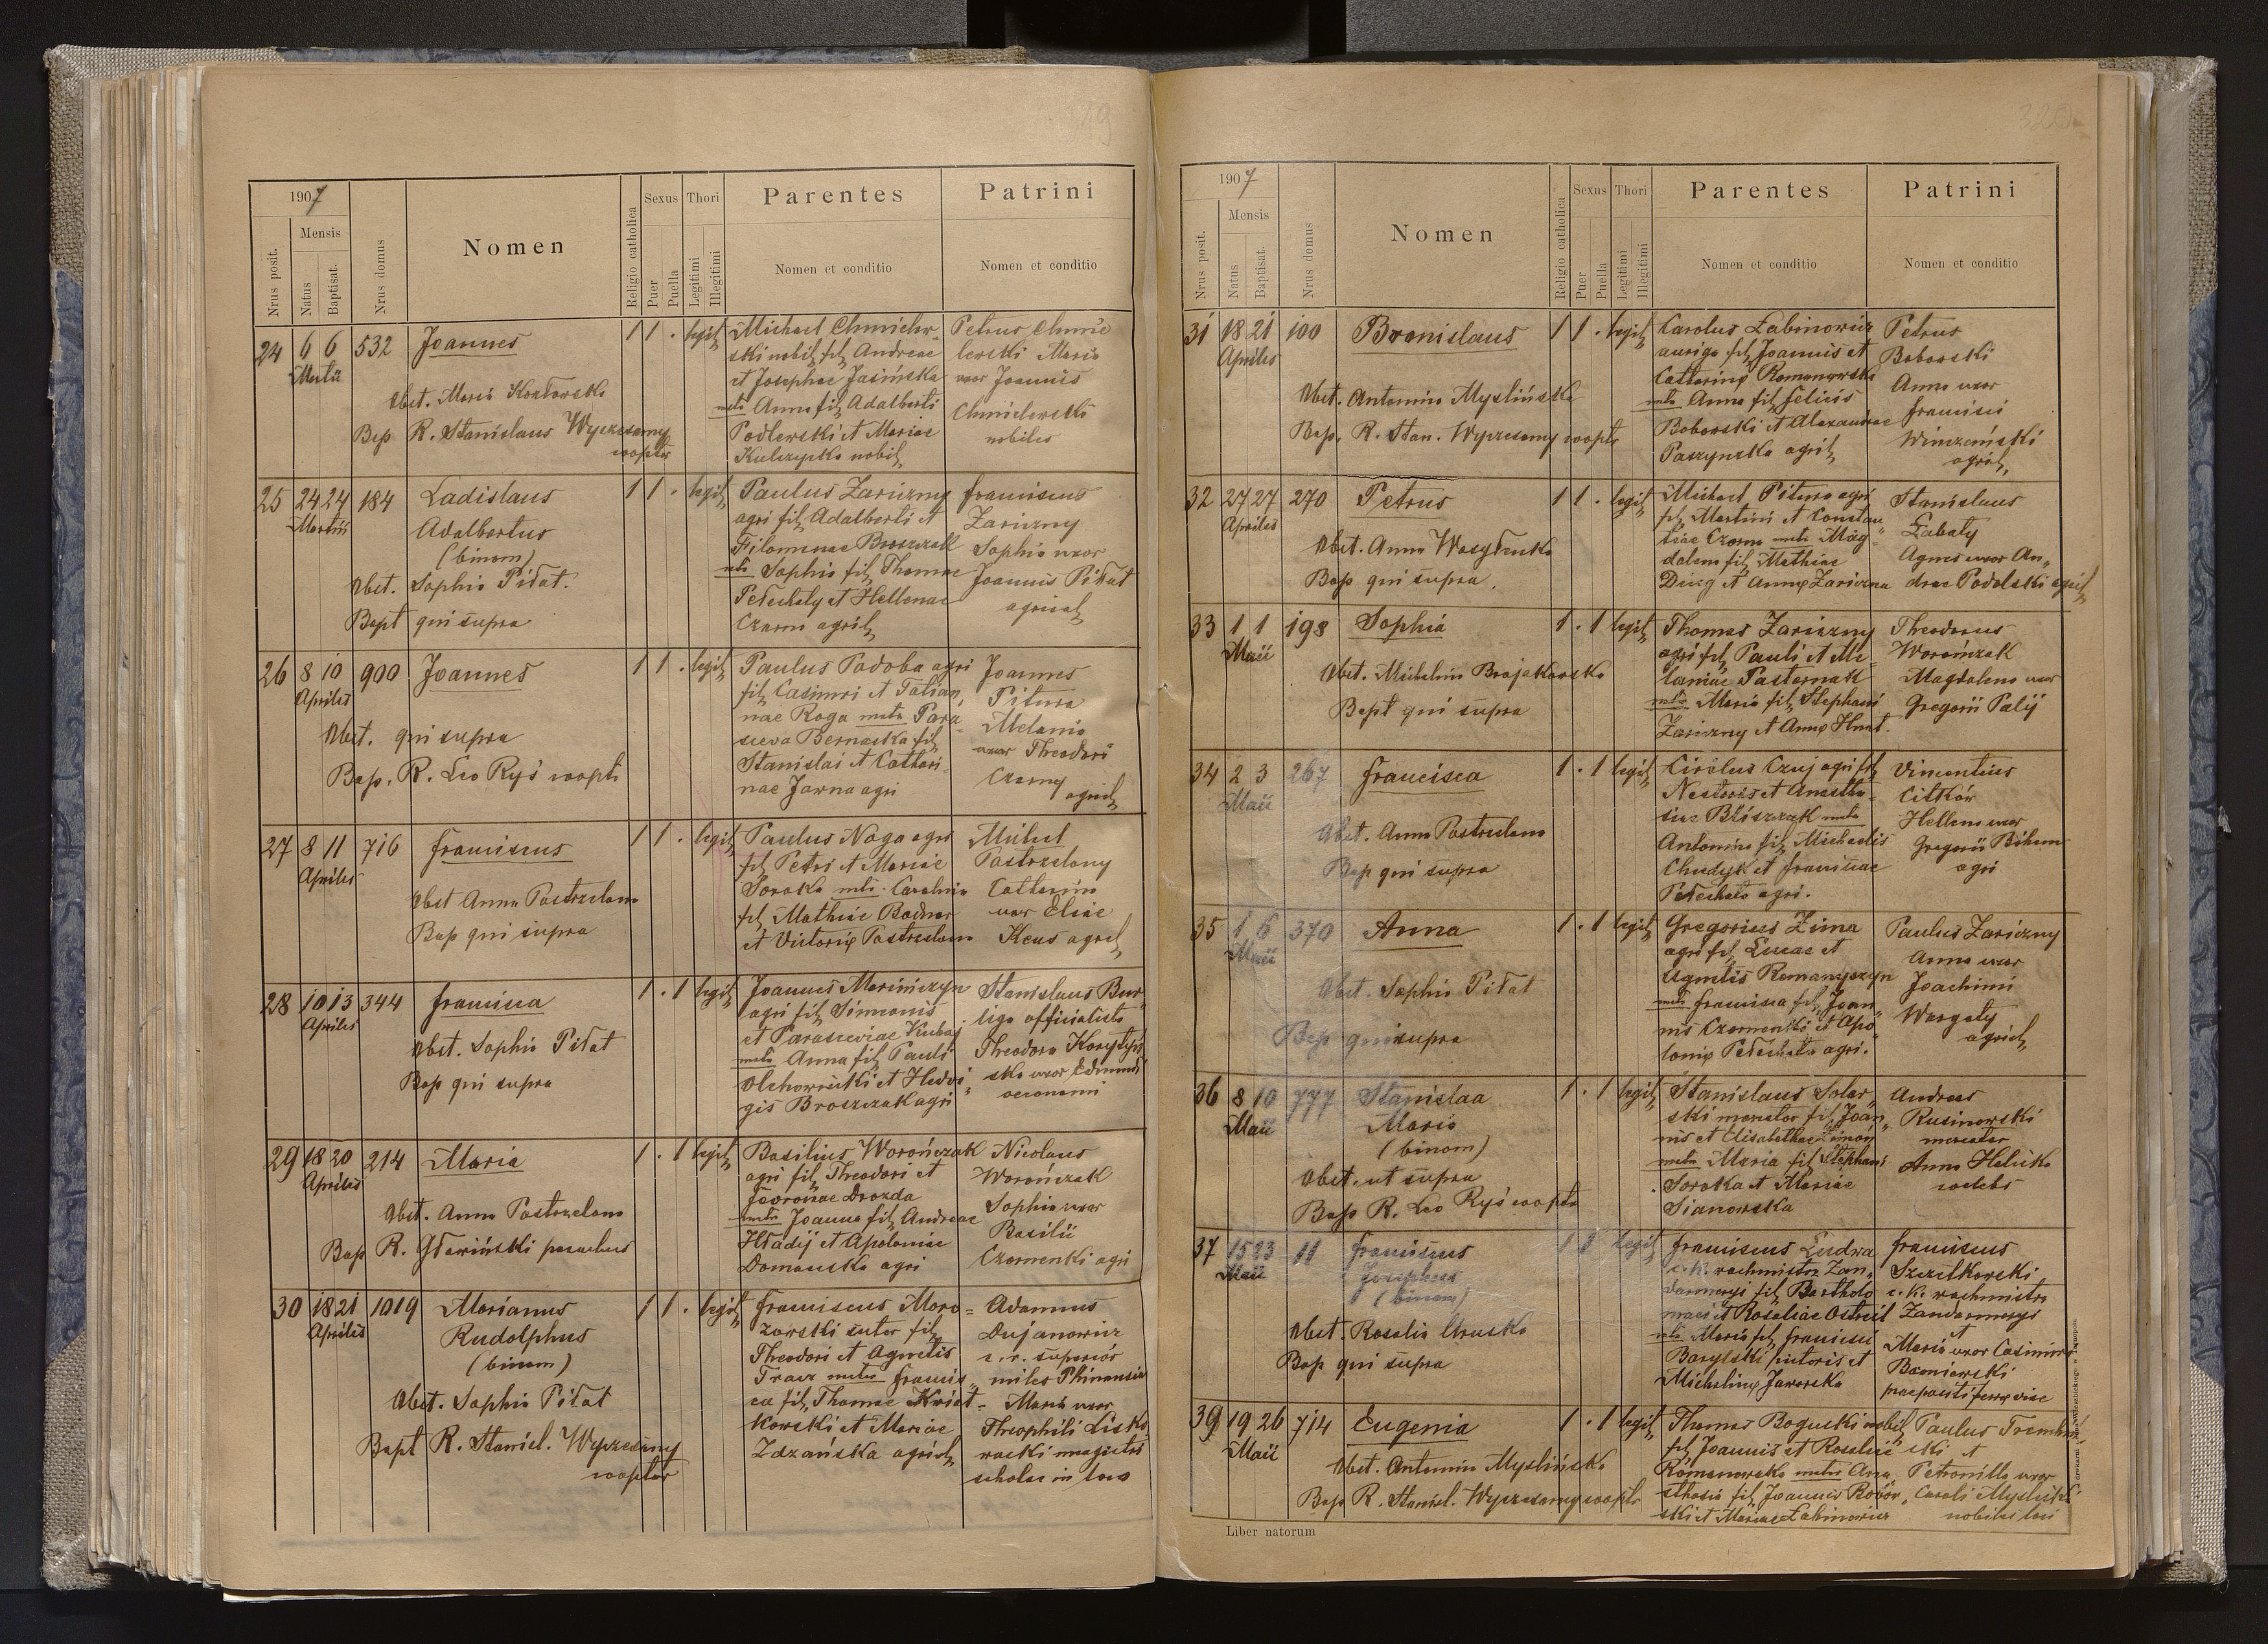 1907
Nrus posit.
Mensis
Natus
Baptisat.
Nrus domus
Nomen
Religio catholica
Sexus
Puer
Puella
Thori
Legitimi
Illegitimi
Parentes
Nomen et conditio
Patrini
Nomen et conditio
24 6 6 532 Joannes 1 1 . legit
Martii
Obst. Maria
Bap R. Stanislaus Wyczesany
cooptor
Michael Chmielew-
ski nobil, fil, Andreae
et Josephae Jasińska
mater Anna fil, Adalberti
Podlewski et Mariae
Kulczycka nobil,
Petrus Chmie
lewski Maria
uxor Joannis
Chmielewski
nobiles
25 24 24 184 Ladislaus 1 1 . legit,
Martii
Adalbertus
(binom)
Obst. Sophia Piłat.
Bapt qui supra
Paulus Zariczny
agri fil, Adalberti et
Filomenae Broszczak
mtr Sophia fil, Thomae
Petechaty et Hellenae
Czarna agril,
Franciscus
Zariczny
Sophia uxor
Joannis Piłat
agricol,
26 8 10 900 Joannes 1 1 . legit,
Aprilis
Obst. qui supra
Bap. R. Leo Ryś coopt.
Paulus Padoba agri
fil, Casimiri et Tatian-
nae Roga mater Para-
sceva Bernaska fil,
Stanislai et Cathari-
nae Jarna agri
Joannes
Pitura
Melania
uxor Theodori
Czarny
agricol,
27 8 11 716 Franciscus 1 1 . legit,
Aprilis
Obst Anna Postrzelona
Bap qui supra
Paulus Naga agri
fil, Petri et Mariae
Soroka mtr. Carolina
fil, Mathiae Bodnar
et Victoriae Postrzelona
Michael
Postrzelony
Catharina
uxor Eliae
Keus agril,
28 10 13 344 Francisca 1 . 1 legit,
Aprilis
Obst. Sophia Piłat
Bap qui supra
Joannes Marińczyn
agri fil, Simeonis
et Parasceviae Kubaj
mater Anna fil, Pauli
Olchowecki et Hedvi-
gis Broszczak agri
Stanislaus Bur-
liga officialista
Theodora
uxor Edmundi
oeconomi
29 18 20 214 Maria 1 . 1 legit,
Aprilis
Obst. Anna Postrzelona
Bap R. Gławiński parochus
Basilius Worończak
agri fil, Theodori et
Fevroniae Drozda
mater Joanna fil, Andreae
Hładij et Apoloniae
Domanska agri
Nicolaus
Worończak
Sophia uxor
Basilii
Czornenki agri
30 18 21 1019 Marianus 1 1 . legit,
Aprilis
Rudolphus
(binom)
Obst. Sophia Piłat
Bapt R. Stanisl. Wyczesany
cooptor
Franciscus Moro-
zowski sutor fil,
Theodori et Agnetis
Tracz mater Francis-
ca fil, Thomae Kwiat-
kowski et Mariae
Zdzańska agricol,
Adamus
Dujanowicz
c. r. superior
miles
Maria uxor
Theophili Lisko
wacki magistri
scholae in loco
1907
Nrus posit.
Mensis
Natus
Baptisat.
Nrus domus
Nomen
Religio catholica
Sexus
Puer
Puella
Thori
Legitimi
Illegitimi
Parentes
Nomen et conditio
Patrini
Nomen et conditio
31 18 21 100 Bronislaus 1 1 . legit,
Aprilis
Obst. Antonina Myslińska
Bap. R. Stan. Wyczesany coopts
Carolus Łabinowicz
auriga fil, Joannis et
Catharinae Romanowska
mater Anna fil, Felicis
Boborski et Alexandrae
Paszynska agril,
Petrus
Boborski
Anna uxor
Francisci
agril,
32 27 27 270 Petrus 1 1 . legit,
Aprilis
Obst. Anna Wasyłenka
Bap qui supra.
Michael Pitura agri
fil, Martini et Constan-
tiae Czarna mater Mag-
dalena fil, Mathiae
Ding et Annae Zariczna
Stanislaus
Łabaty
Agnes uxor An-
dreae Podolski agril,
33 1 1 198 Sophia 1 . 1 legit,
Maii
Obst. Michalina Brajakowska
Bapt qui supra
Thomas Zariczny
agri fil, Pauli et Me-
laniae Pasternak
mater Maria fil, Stephani
Zariczny et Annae Hnat.
Theodorus
Worończak
Magdalena uxor
Gregorii Palij
34 2 3 267 Francisca 1 . 1 legit,
Maii
Obst. Anna Postrzelona
Bap qui supra
Cirilus Czuj agri fil,
Nestoris et Anasta-
siae Błiszczak mater
Antonina fil, Michaelis
Chudyk et Franciscae
Petechata agri.
Vincentius
Citków
Hellena uxor
Gregorii Bihun
agri
35 1 6 370 Anna 1 . 1 legit,
Maii
Obst. Sophia Piłat
Bap qui supra
Gregorius Zima
agri fil, Lucae et
Agnetis Romanyszyn
mater Francisca fil, Joan-
nis Czornenki et Apo-
loniae Petechata agri.
Paulus Zariczny
Anna uxor
Joachimi
Wargaty
agril,
36 8 10 777 Stanislaa 1 . 1 legit,
Maii
Maria
(binom)
Obst. ut supra
Bap R. Leo Ryś coopts
Stanislaus Solar-
ski mercator fil, Joan-
nis et Elisabethae Zimon
mater Maria fil, Stephani
Soroka et Mariae
Sianowska
Andreas
Rusinowski
mercator
Anna Halicka
coelebs
37 15 23 11 Franciscus 1 1 legit,
Maii
Josephus
(binom)
Obst. Rosalia Uruska
Bap qui supra
Franciscus Ludwa
c. k. wachmistrz Żan-
darmeryi fil, Bartholo-
maei et Rosaliae
mtr Maria fil, Francisci
Barylski pictoris et
Michalinae Jaworska
Franciscus
Szczełkowski
c. k. wachmistrz
Żandarmeryi
et
Maria uxor Casimiri
Baniewski
praepositi ferreae viae
39 19 26 714 Eugenia 1 . 1 legit,
Maii
Obst. Antonina Myslińska
Bap R. Stanisl. Wyczesany coopts
Thomas Boguski nobil,
fil, Joannis et Rosaliae
Romanowska mater Ana-
sthasia fil, Joannis Bobor-
ski et Mariae Łabinowicz
Paulus
ski et
Petronilla uxor
Caroli Myslicki
nobiles loci
Liber natorum